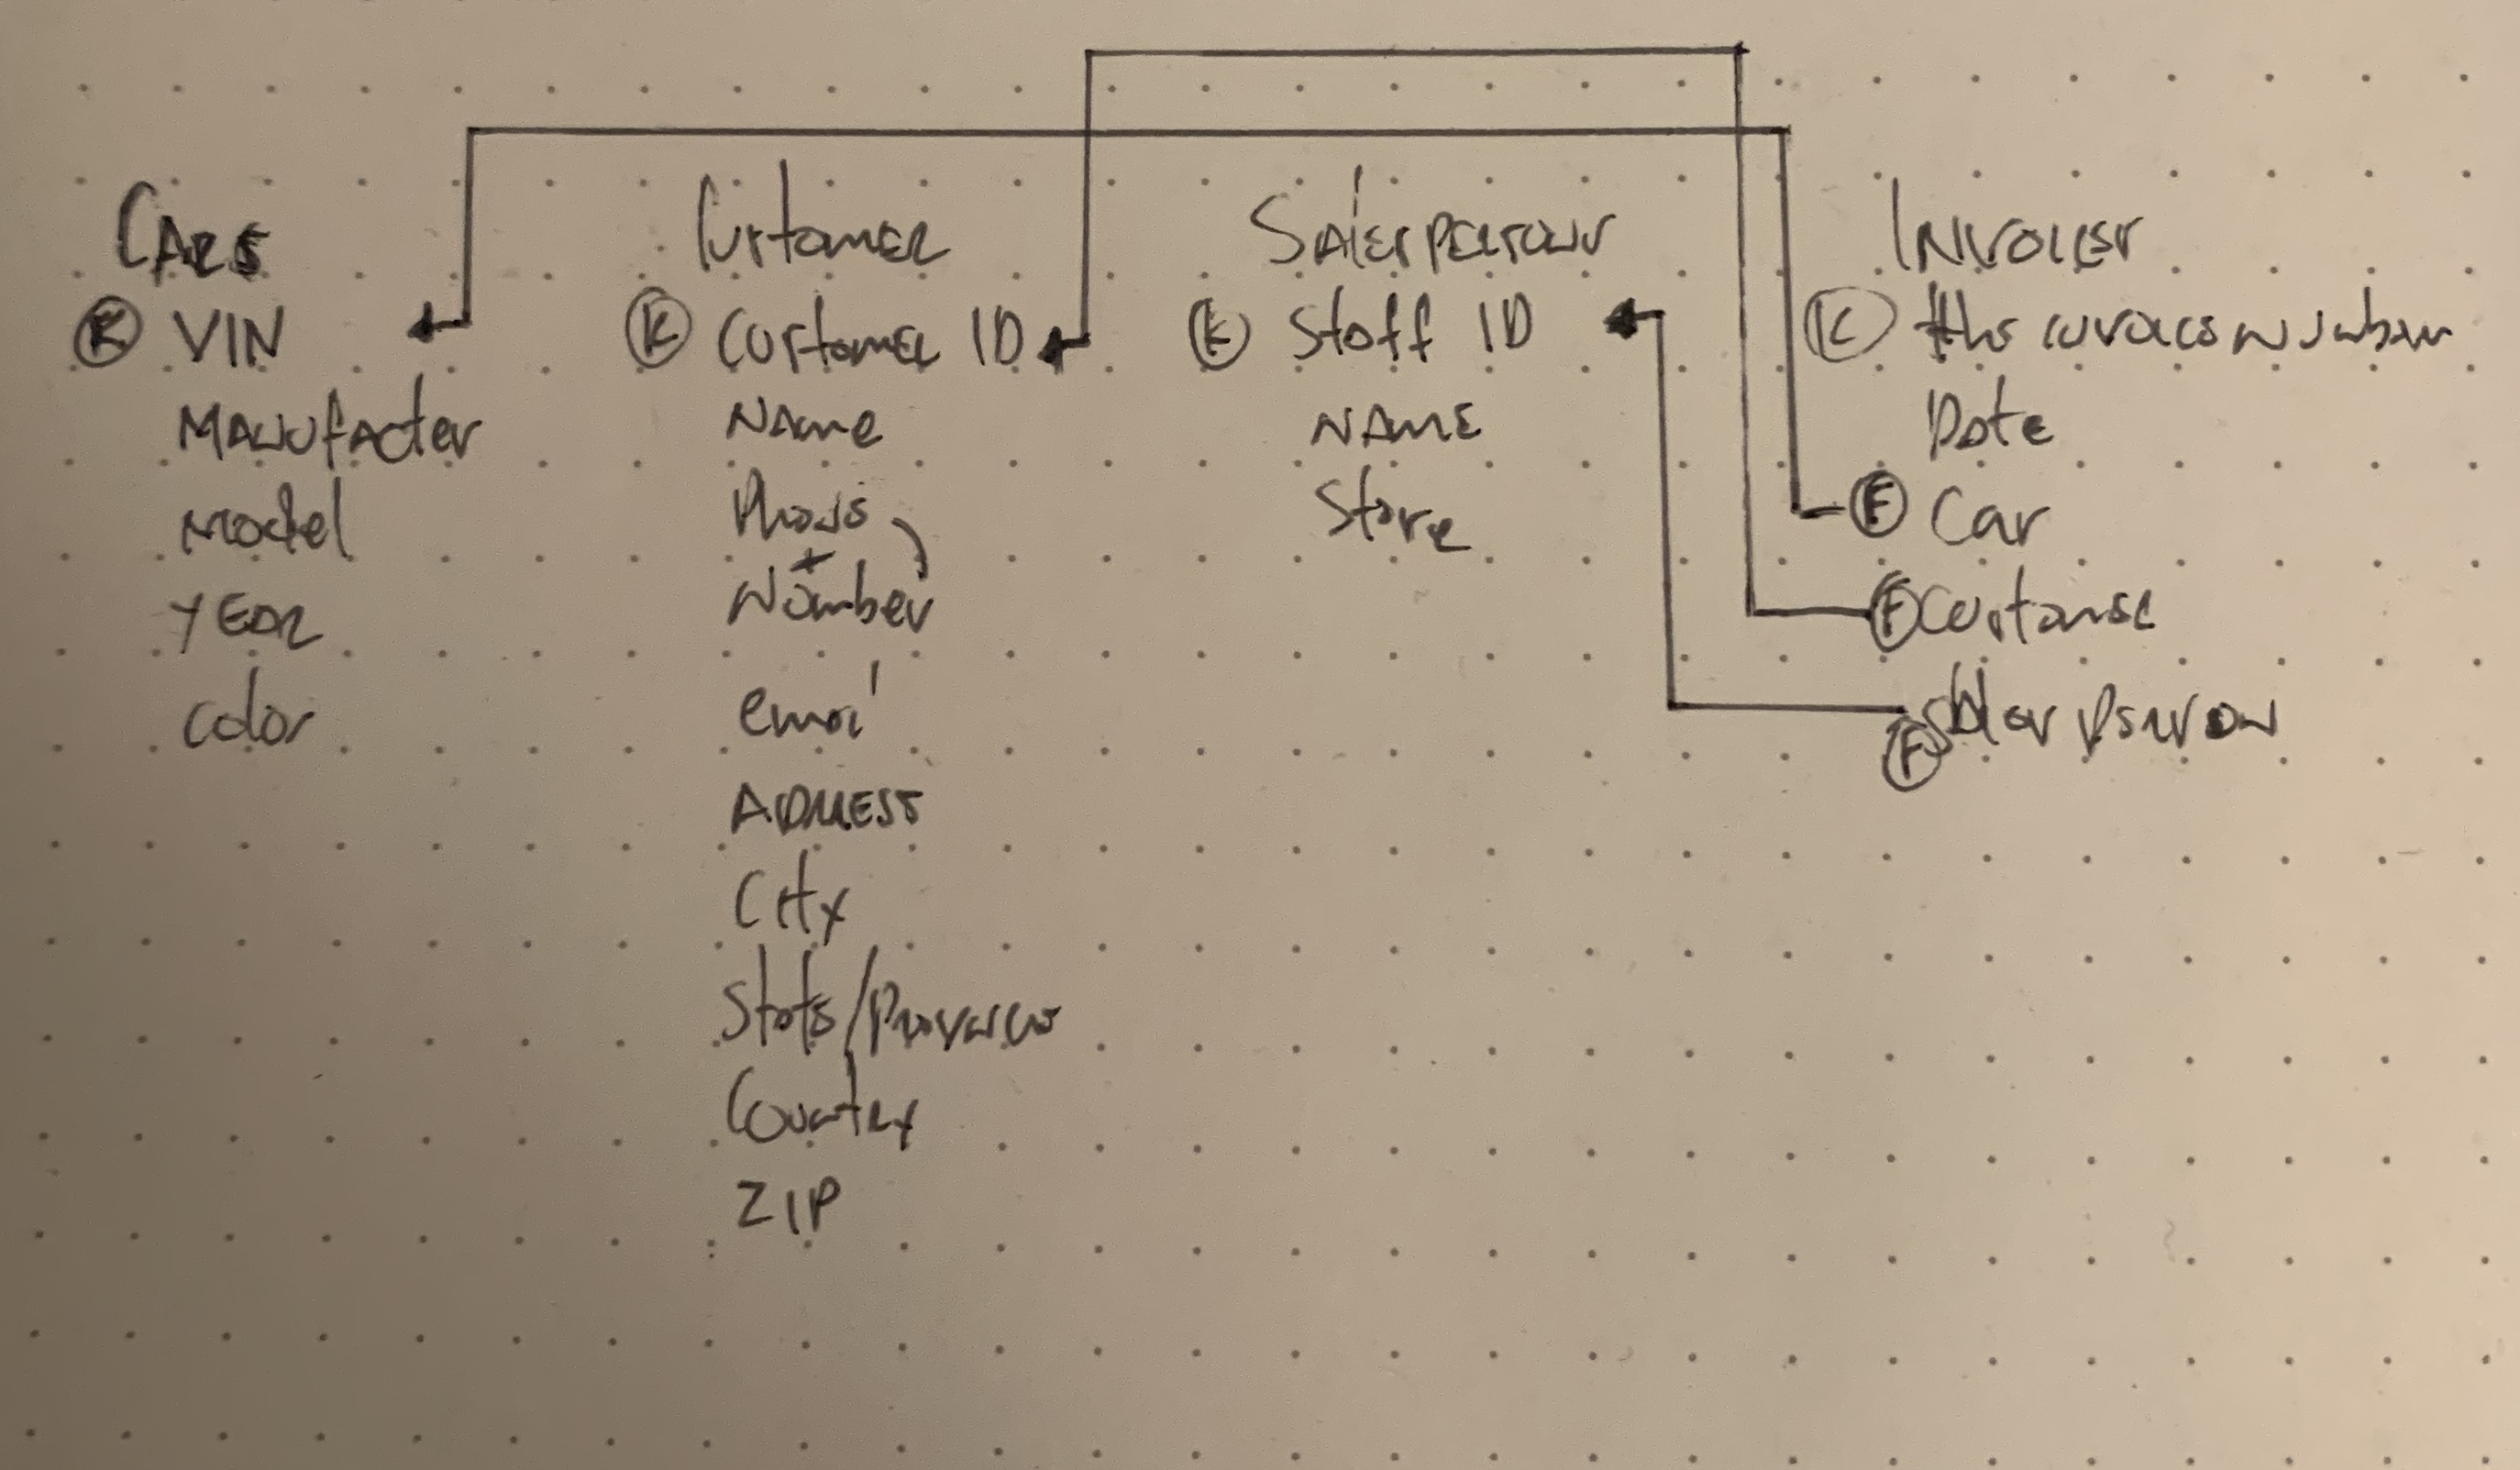 Cars
K VIN
Manufacter
Model
Year
Color
Customer
K Customer ID
Name
Phone
Number
email
Address
City
State/Province
Country
ZIP
Salespersons
K Staff ID
Name
Store
Invoices
K the invoice number
Date
F Car
F Customer
F Sales person